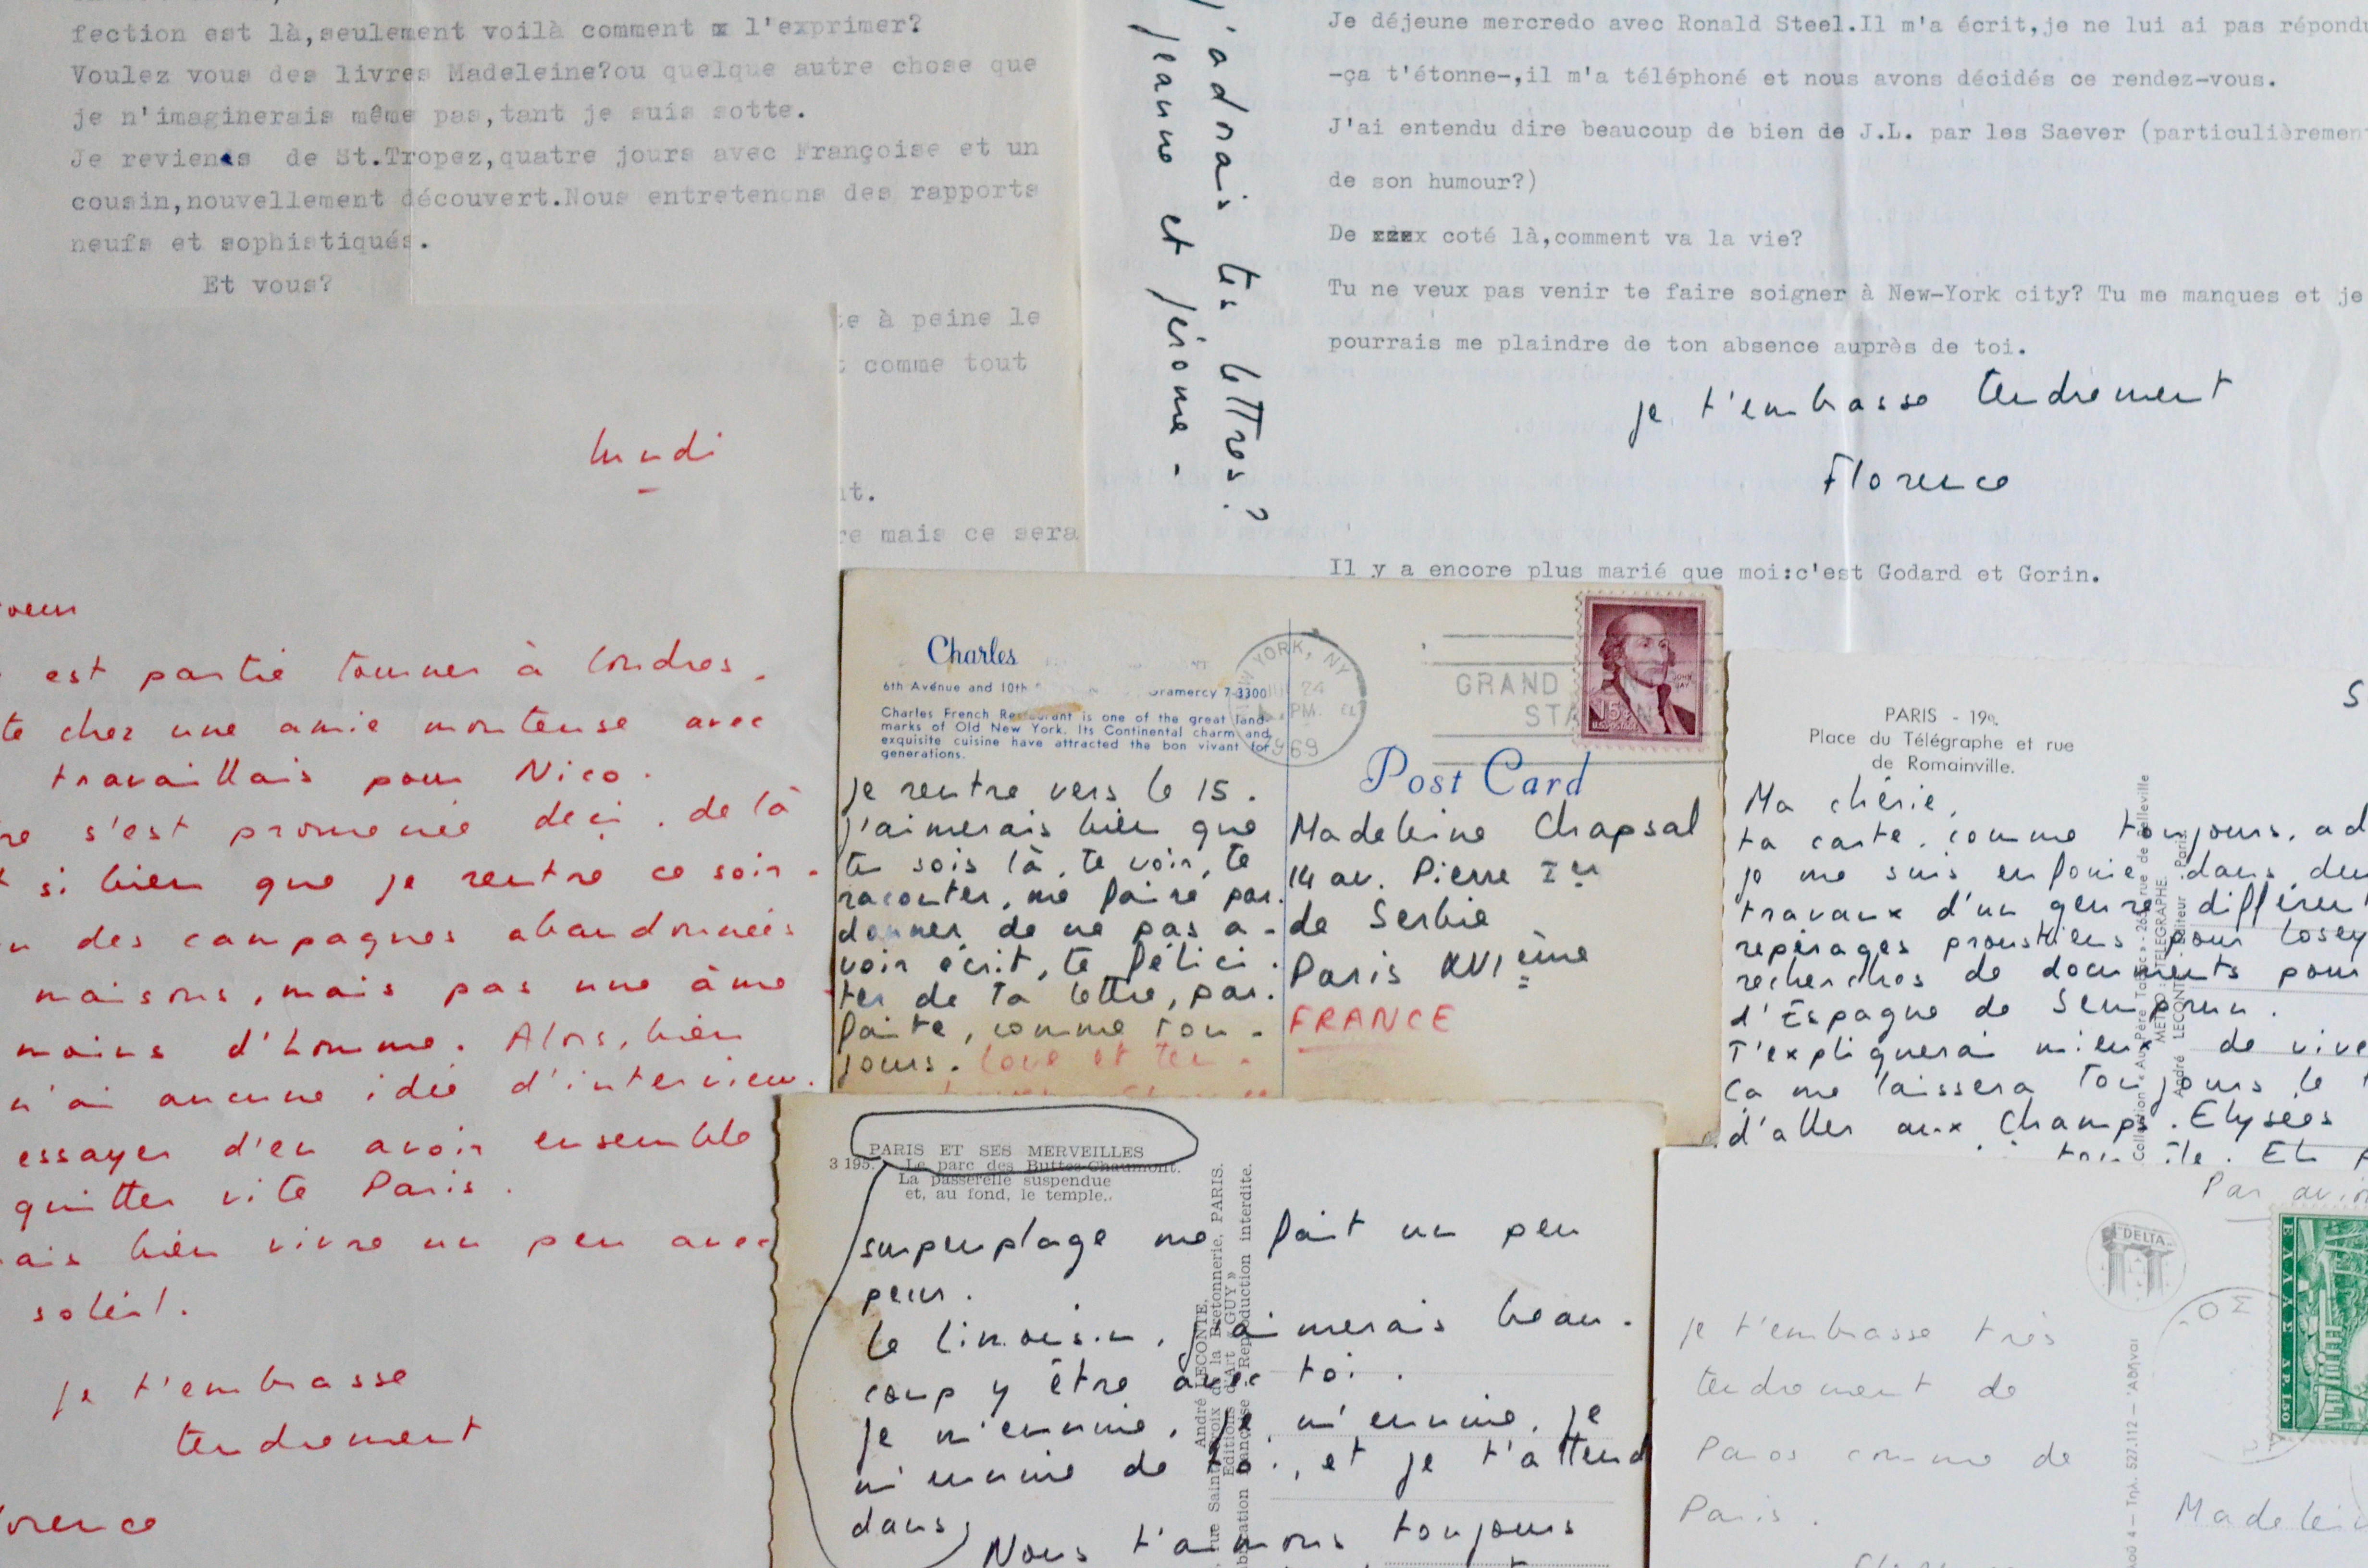 fection est là,seulement voilà comment x l'exprimer?
Voulez vous des livres Madeleine?ou quelque autre chose que
je n'imaginerais même pas,tant je suis sotte.
Je reviens de St.Tropez,quatre jours avec Françoise et un
cousin,nouvellement découvert.Nous entretenons des rapports
neufs et sophistiqués.
Et vous?
te à peine le
comme tout
nt.
re mais ce sera
j'adorais tes lettres?
Jeanne et Jérome -
Je déjeune mercredo avec Ronald Steel.Il m'a écrit,je ne lui ai pas répondu
-ça t'étonne-,il m'a téléphoné et nous avons décidés ce rendez-vous.
J'ai entendu dire beaucoup de bien de J.L. par les Saever (particulièrement
de son humour?)
De coté là,comment va la vie?
Tu ne veux pas venir te faire soigner à New-York city? Tu me manques et je
pourrais me plaindre de ton absence auprès de toi.
je t'embrasse tendrement
Florence
Il y a encore plus marié que moi:c'est Godard et Gorin.
lundi
est partie tourner à Londres.
te chez une amie monteuse avec
travaillais pour Nico.
s'est promenée deci. de là
si bien que je rentre ce soir.
des campagnes abandonnées
maisons, mais pas une âme
moins d'homme. Alors, bien
n'ai aucune idée d'interview.
essayer d'en avoir ensemble
quitter vite Paris.
ais bien vivre un peu avec
soleil.
je t'embrasse
tendrement
orence
Charles
6th Avenue and 10th Gramercy 7-3300
Charles French Restaurant is one of the great land-
marks of Old New York. Its Continental charm and
exquisite cuisine have attracted the bon vivant for
generations.
NEW YORK, NY
24
PM
1969
GRAND
STA
JOHN JAY
15¢
U.S. POSTAGE
Post Card
je rentre vers le 15.
j'aimerais bien que
tu sois là, te voir, te
raconter, me faire par.
donner de ne pas a-
voir écrit, te félici.
ter de ta lettre, par.
faite, comme tou-
jours. love et ten-
Madeleine Chapsal
14 av. Pierre Ier
de Serbie
Paris XVIème
FRANCE
PARIS - 19e.
Place du Télégraphe et rue
de Romainville.
Ma chérie,
ta carte, comme toujours, ad
je me suis enfouie dans des
travaux d'un genre différent
repérages proustiens pour Losey
recherches de documents pour
d'Espagne de Semprun.
T'expliquerai mieux de vive
Ca me laissera toujours le t
d'aller aux Champs.Elysées
METRO : TELEGRAPHE.
PARIS ET SES MERVEILLES
3 195. Le parc des Buttes-Chaumont.
La passerelle suspendue
et, au fond, le temple.
surpeuplage me fait un peu
peur.
Le limousin, j'aimerais beau.
coup y être avec toi.
Je m'ennuie, je m'ennuie, je
m'ennuie de toi, et je t'attend
dans
Nous t'aimons toujours
André LECONTE,
rue Sainte-Croix de la Bretonnerie, PARIS.
Editions d'Art « GUY »
Fabrication Française Reproduction interdite.
Par avion
DELTA
ΕΛΛΑΣ ΔΡ.1.50
je t'embrasse très
tendrement de
Paros comme de
Paris.
Madelei
Τηλ. 527.112 — Ἀθῆναι